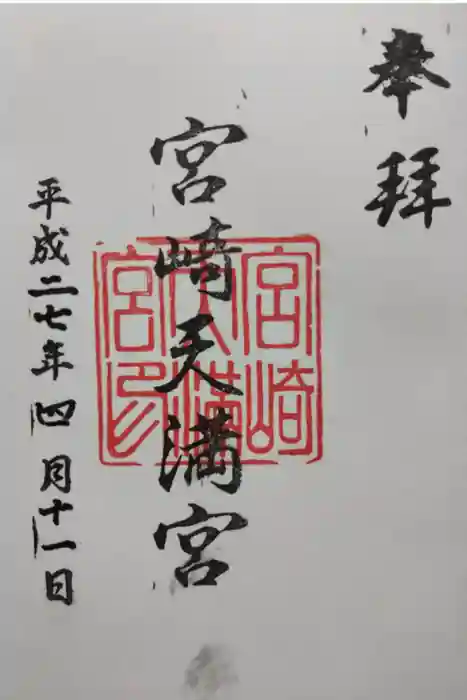 奉拝
宮崎天満宮
宮崎
天満
宮印
平成二七年四月十一日